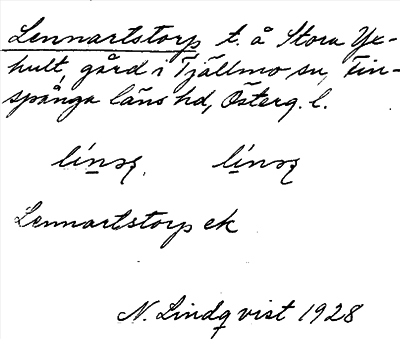 Lennartstorp t. å Stora Yx-
hult, gård i Tjällmo sn, Fin-
spånga läns hd, Österg. l.
Lennartstorp ek
N. Lindqvist 1928